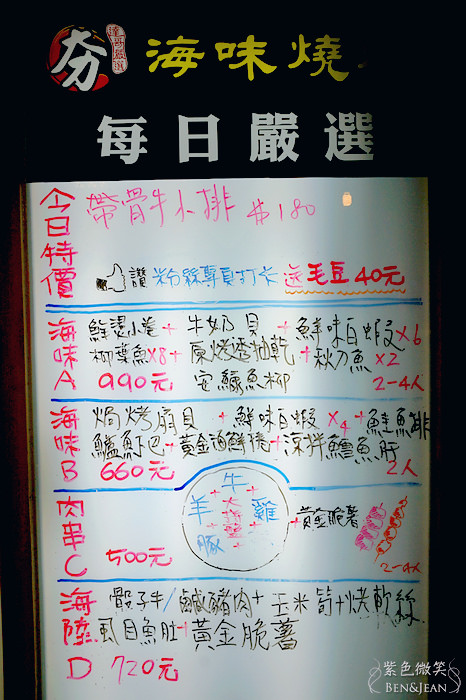 夯
達哥嚴選
海味燒
每日嚴選
今日特價
帶骨牛小排 $180
讚 粉絲專頁打卡 送毛豆40元
海味A
鮮燙小卷+牛奶貝+鮮味白蝦x6
柳葉魚x8+原烤透抽乾+秋刀魚x2
990元 安鱇魚柳 2-4人
海味B
焗烤扇貝+鮮味白蝦x4+鮭魚排
鱸魚下巴+黃金海鮮捲+涼拌鱈魚肝
660元 2人
肉串C
牛
羊 大拼盤 雞
豚
+黃金脆薯
500元 2-4人
海陸D
骰子牛/鹹豬肉+玉米筍+烤軟絲
虱目魚肚+黃金脆薯
720元
紫色微笑
BEN&JEAN